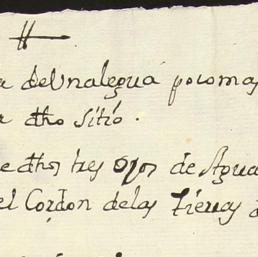 a deUnalegua pocomas
a dho sitio.
e dhos tres ojos de Agua
el Cordon delas tierras